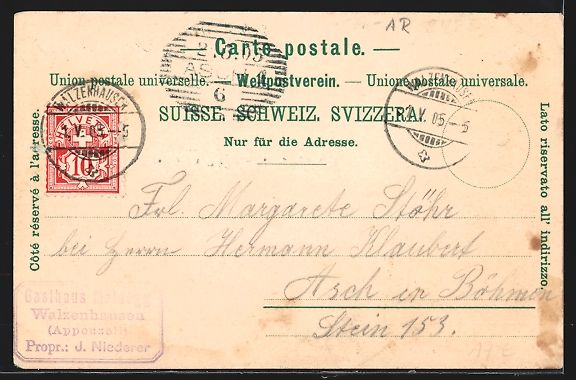 AR
— Carte postale. —
Union postale universelle. — Weltpostverein. — Unione postale universale.
SUISSE. SCHWEIZ. SVIZZERA.
Nur für die Adresse.
WALZENHAUSEN
V. 05 - 5
HELVETIA
10
6
WALZENHAUSEN
V. 05 - 5
Côté réservé à l'adresse.
Lato riservato all' indirizzo.
Frl. Margarete Stöhr
bei Herrn Hermann Klaubert
Asch in Böhmen
Stein 153.
Gasthaus
Walzenhausen
(Appenzell)
Propr.: J. Niederer